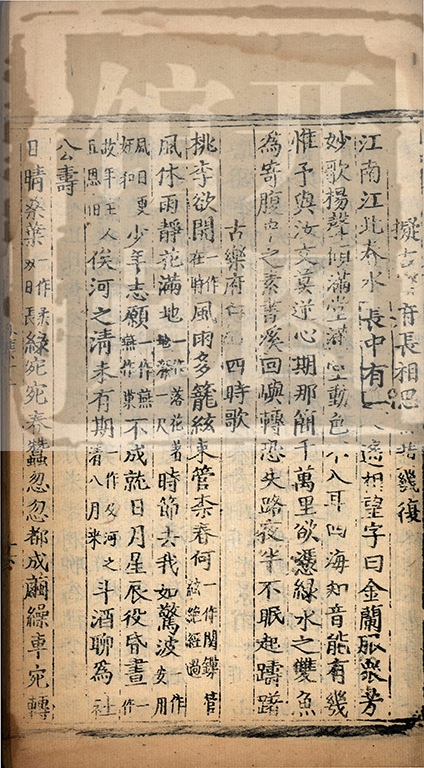 擬古府長相思幾復
江南江北春水長中有一遙相望字曰金蘭服衆芳
妙歌揚聲傾滿堂滿堂動色不入耳四海知音能有幾
惟予與汝交莫逆心期那簡千萬里欲憑綠水之雙魚
為寄腹中之素書溪回嶼轉恐失路夜半不眠起躊躇
古樂府四時歌
桃李欲開一作在時風雨多籠絃束管柰春何一作関鏁管絃絶經過
風休雨靜花滿地一作落花著地春一尺時節去我如驚波一作安用
風日更好和少年志願一作無不成就日月星辰役昏晝一作
故年主人丘恩旧俟河之清未有期一作及河之清八月來斗酒聊為社
公壽
日晴桑葉一作日長綠宛宛春蠶忽忽都成繭繰車宛轉